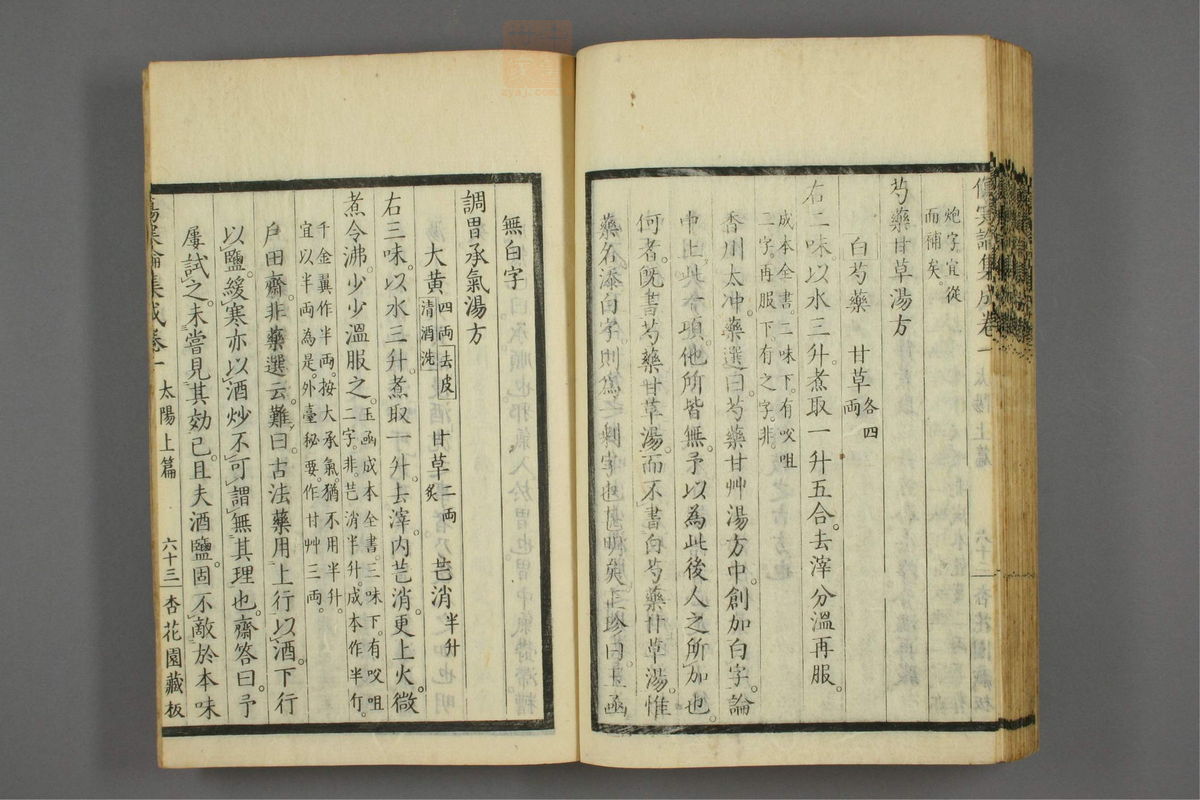 傷寒論集成卷一
炮字宜從
而補矣。
芍藥甘草湯方
白芍藥 甘草各四両
右二味。以水三升。煮取一升五合。去滓分溫再服。
成本全書。二味下。有㕮咀
二字。再服下。有之字。非。
香川太冲藥選曰。芍藥甘艸湯方中。創加白字。論
中止此一項。他所皆無。予以為此後人之所加也。
何者。旣書芍藥甘草湯。而不書白芍藥甘草湯。惟
藥名添白字。則爲之剩字也明矣。正珍曰。玉函
無白字
調胃承氣湯方
大黃四両去皮清酒洗 甘草二両炙 芒消半升
右三味。以水三升。煮取一升。去滓。內芒消。更上火。微
煮令沸。少少溫服之。玉函成本全書。三味下。有㕮咀
二字。非。芒消半升。成本作半斤。
千金翼作半両。按大承氣。猶不用半升。
宜以半両為是。外臺秘要。作甘艸三両。
戶田齋。非藥選云。難曰。古法藥用上行。以酒。下行
以鹽。緩寒亦以酒炒。不可謂無其理也。齋答曰。予
屢試之。未嘗見其効已。且夫酒鹽。固不敵於本味
傷寒論集成卷一 太陽上篇 六十三 杏花園藏板